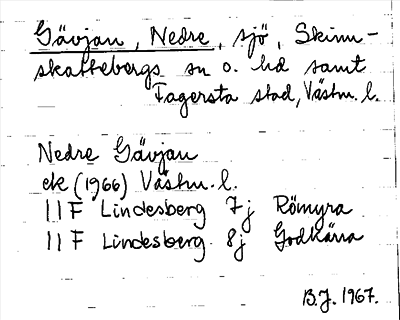 Gävjan, Nedre, sjö, Skinn-
skattebergs sn o. hd samt
Fagersta stad, Västm. l.
Nedre Gävjan
ek (1966) Västm. l.
11 F Lindesberg 7j Römyra
11 F Lindesberg 8j Godkärra
B.J. 1967.